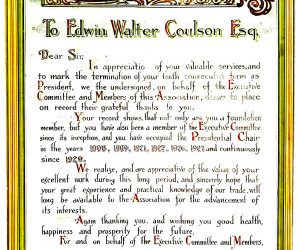 To Edwin Walter Coulson Esq.
Dear Sir,
In appreciatio of your valuable services, and
to mark the termination of your tenth consecutive term as
President, we the undersigned, on behalf of the Executive
Committee and Members of this Association, desire to place
on record their grateful thanks to you.
Your record shows, that not only are you a foundation
member, but you have also been a member of the Executive Committee
since its inception, and you have occupied the Presidential Chair
in the years and continuously
since 1929.
We realise, and are appreciative of the value of your
excellent work during this long period, and sincerely hope that
your great experience and practical knowledge of our trade, will
long be available to the Association for the advancement of
its interests.
Again thanking you, and wishing you good health,
happiness and prosperity for the future.
For and on behalf of the Executive Committee and Members.